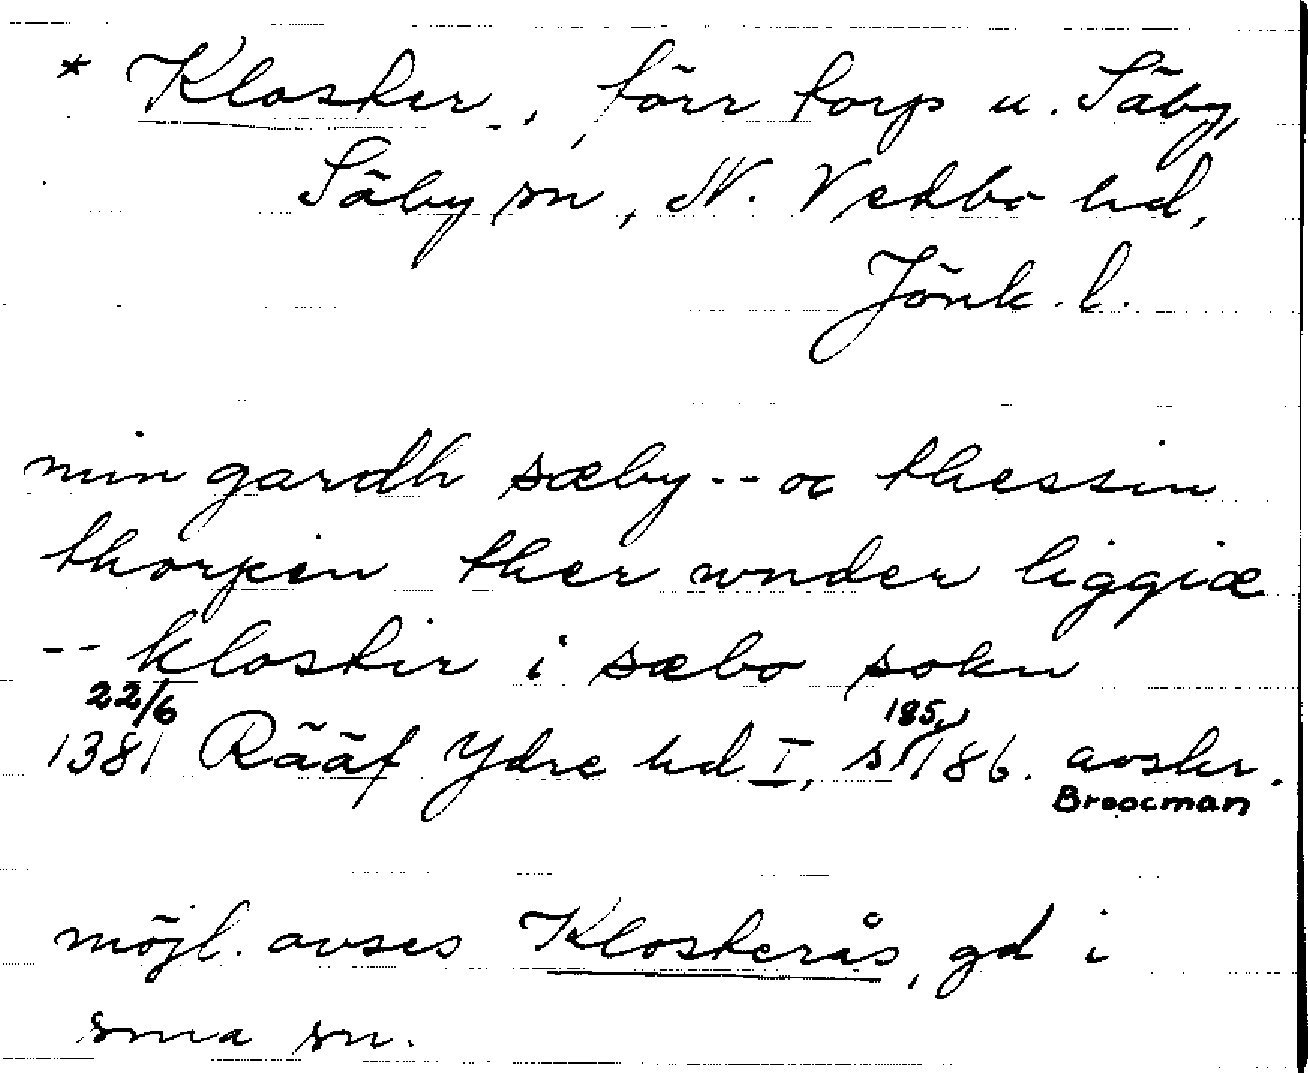 * Kloster, förr torp u. Säby,
Säby sn, N. Vedbo hd,
Jönk. l.
min gardh sæby -- oc thessin
thorpin ther wnder liggiæ
-- klostir i sæbo sokn
22/6 185,
1381 Rääf Ydre hd I, s 186. avskr.
Broocman
möjl. avses Klosterås, gd i
sma sn.